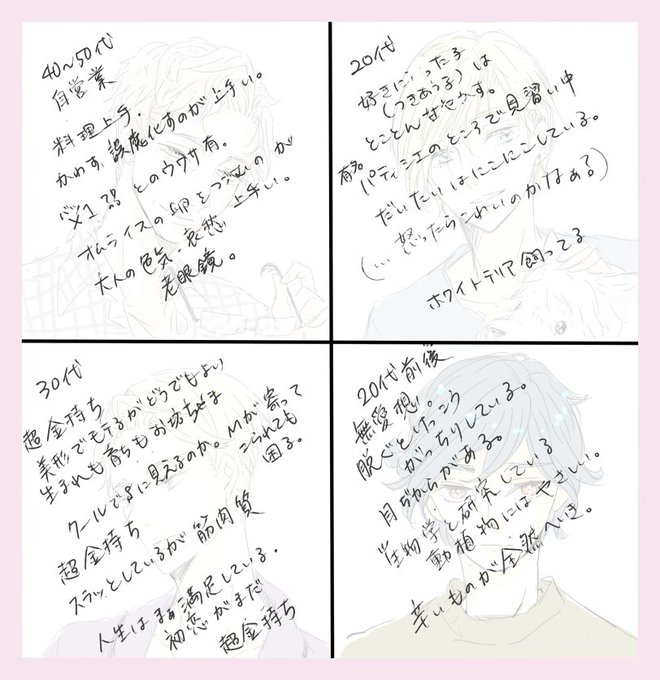 40~50代
自営業
料理上手。
かわす、誤魔化すのが上手い。
バツ1??とのウワサ有。
オムライスの卵をつつむのが
上手い。
大人の色気・哀愁
老眼鏡。
20代
好きになった子
(つきあう子)は
とことん甘やかす。
有名パティシエのところで見習い中
だいたいはにこにこしている。
(…怒ったらこわいのかなぁ?)
ホワイトテリア飼ってる
30代
超金持ち
美形でモテるがどうでもよい
生まれも育ちもお坊ちゃま
クールでSに見えるのか。Mが寄って
こられても
困る。
超金持ち
スラッとしているが筋肉質
人生はまぁ満足している。
初恋がまだ
超金持ち
20代前後
無愛想。
脱ぐとけっこう
がっちりしている。
目ぢからがある。
生物学を研究している
動植物にはやさしい。
辛いものが全然へいき。